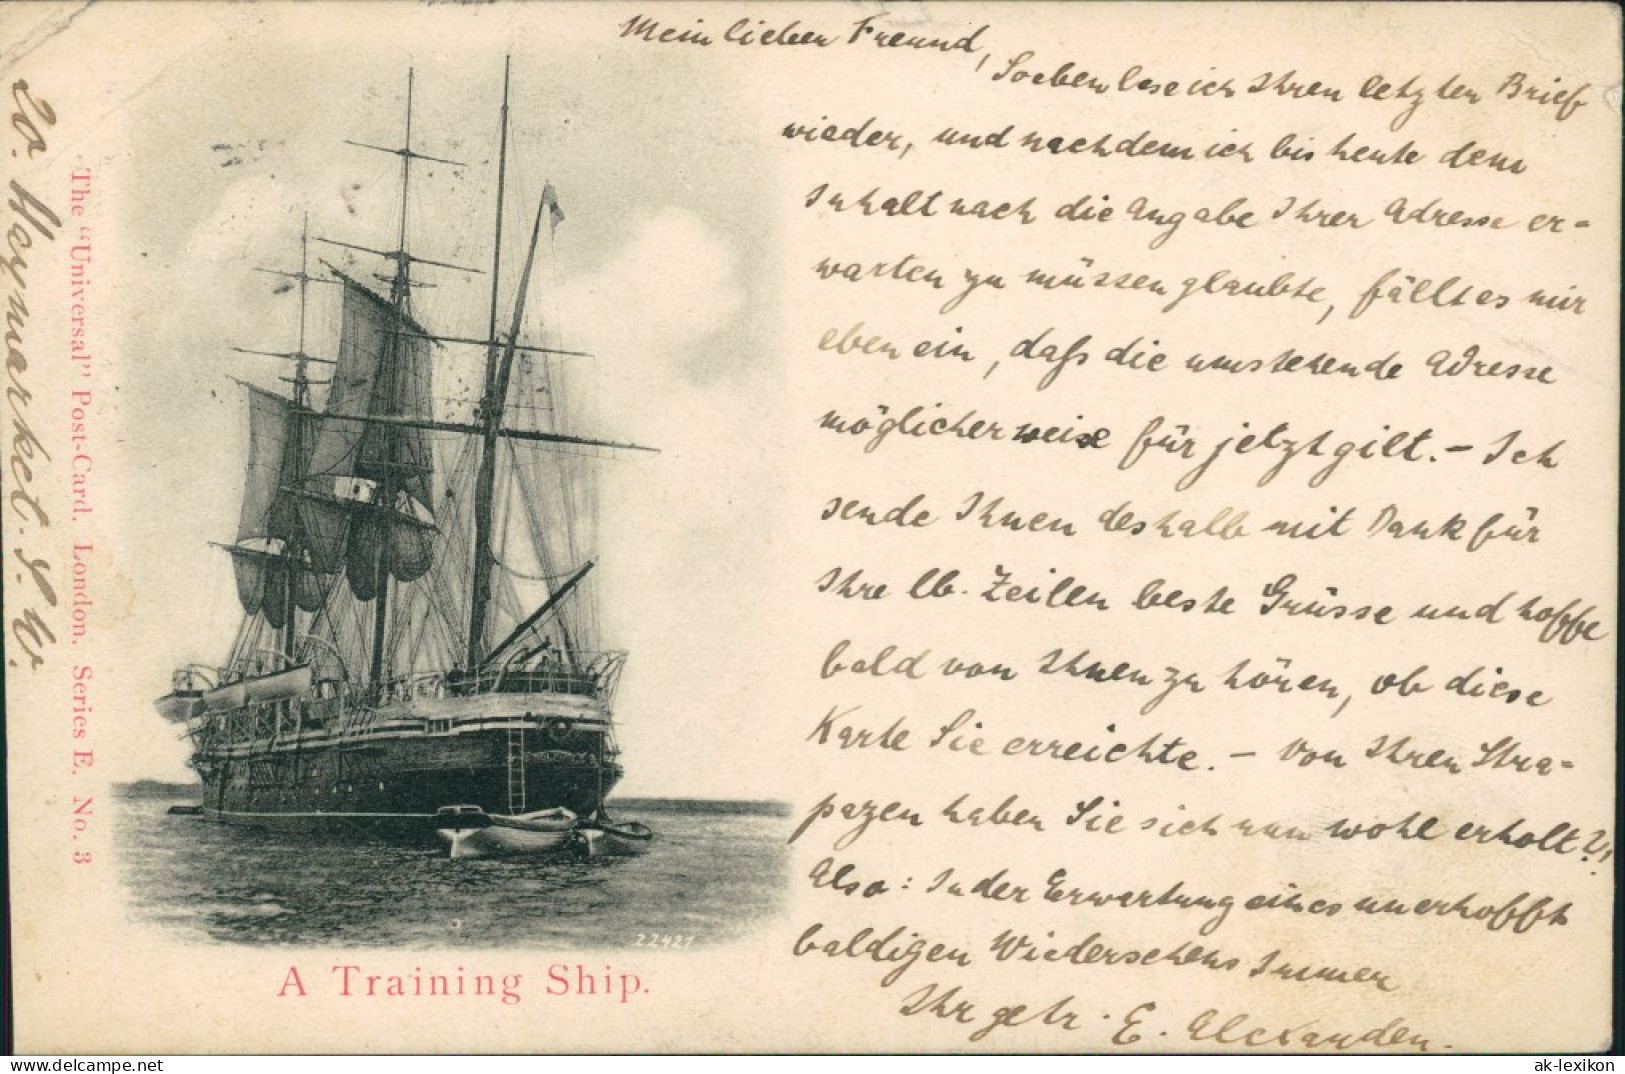 Mein lieber Freund,
Soeben lese ich Ihren letzten Brief
wieder, und nachdem ich bis heute dem
Inhalt nach die Angabe Ihrer Adresse er=
warten zu müssen glaubte, fällt es mir
eben ein, daß die umstehende Adresse
möglicherweise für jetzt gilt. – Ich
sende Ihnen deshalb mit Dank für
Ihre lb. Zeilen beste Grüsse und hoffe
bald von Ihnen zu hören, ob diese
Karte Sie erreichte. – Von Ihren Stra=
pazen haben Sie sich nun wohl erholt?
Also: In der Erwartung eines unerhofft
baldigen Wiedersehens Immer
Ihr getr. E. Alexander.
20. Haymarket. S. W.
The "Universal" Post-Card. London. Series E. No. 3
22421
A Training Ship.
the-postcard-shop
ak-lexikon